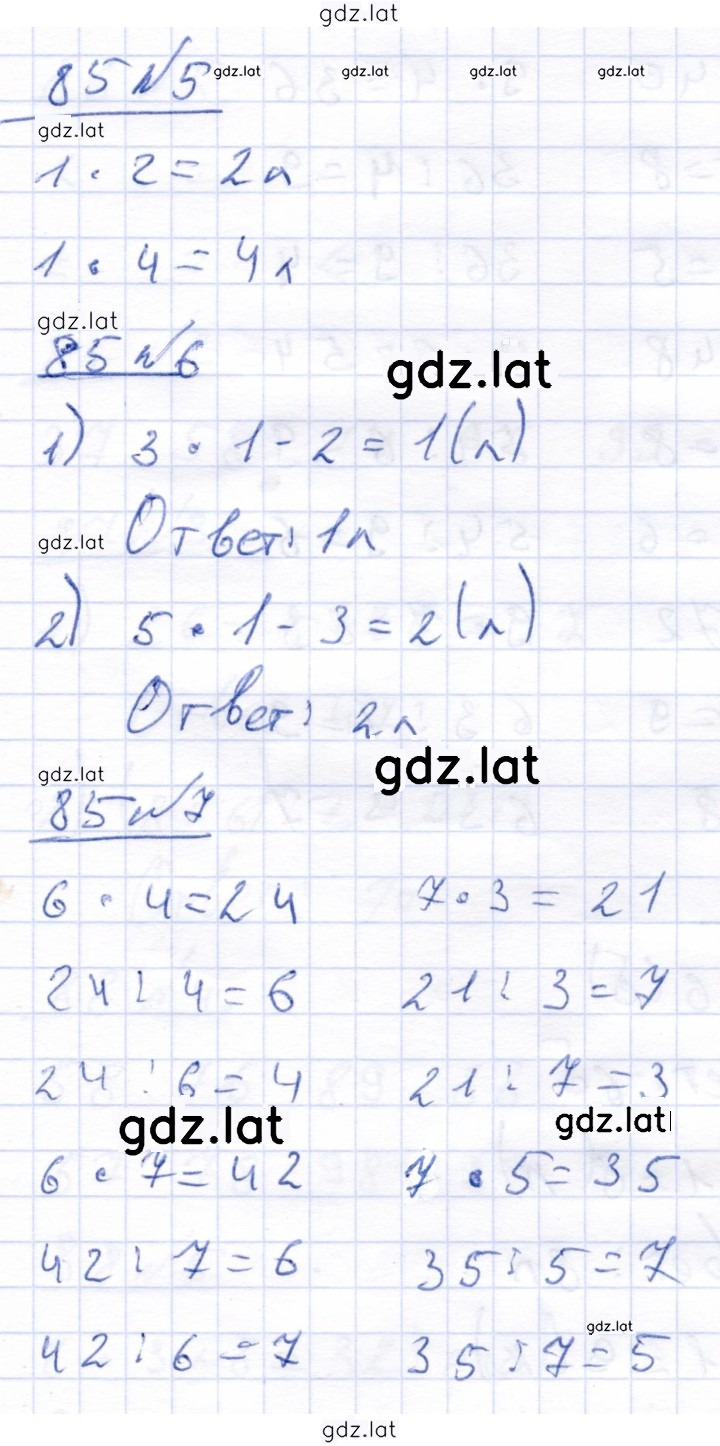 gdz.lat
85 №5 gdz.lat gdz.lat gdz.lat gdz.lat
gdz.lat
1 · 2 = 2л
1 · 4 = 4л
gdz.lat
85 №6
gdz.lat
1) 3 · 1 - 2 = 1(л)
gdz.lat Ответ: 1л
2) 5 · 1 - 3 = 2(л)
Ответ: 2л
gdz.lat
gdz.lat
85 №7
6 · 4 = 24 7 · 3 = 21
24 : 4 = 6 21 : 3 = 7
24 : 6 = 4 21 : 7 = 3
gdz.lat gdz.lat
6 · 7 = 42 7 · 5 = 35
42 : 7 = 6 35 : 5 = 7
gdz.lat
42 : 6 = 7 35 : 7 = 5
gdz.lat